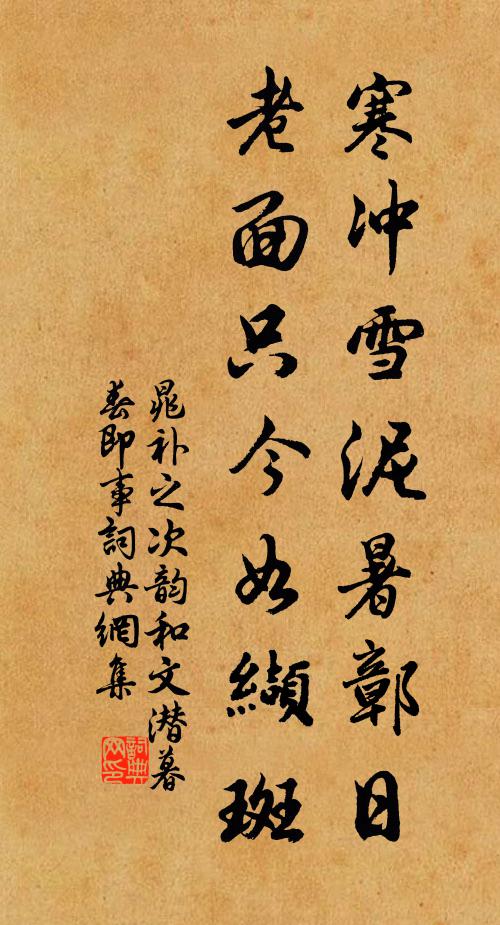 寒冲雪泥暑鄣日
老面只今如纈斑
晁补之次韵和文潜暮
春即事詞典網集
詞典网印